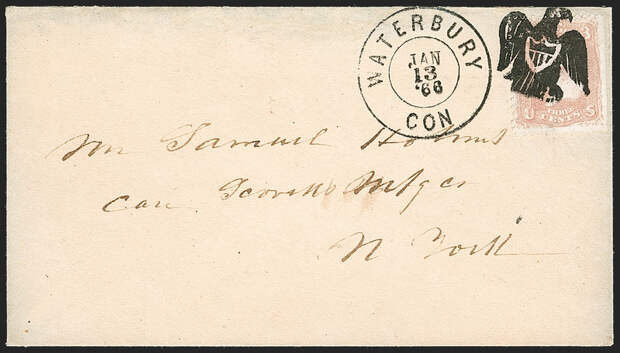 WATERBURY
JAN
13
'66
CON
U S
CENTS
Mr Samuel Holmes
Care Scovills Mfg Co
N York